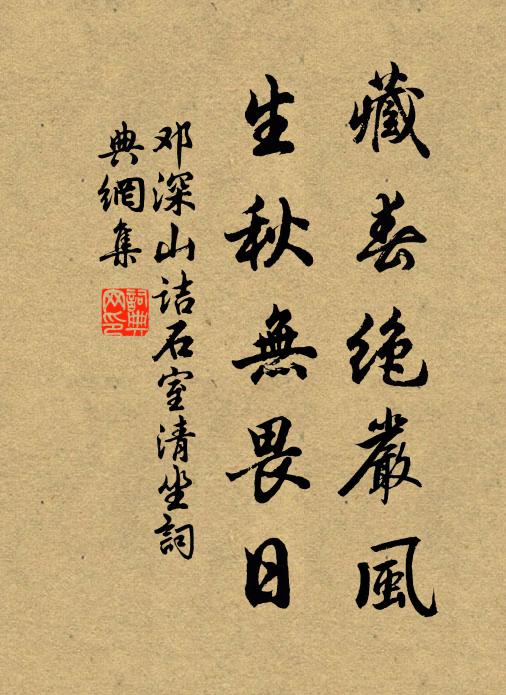 藏春绝嚴風
生秋無畏日
邓深山诘石室清坐詞
典網集
詞典
网印